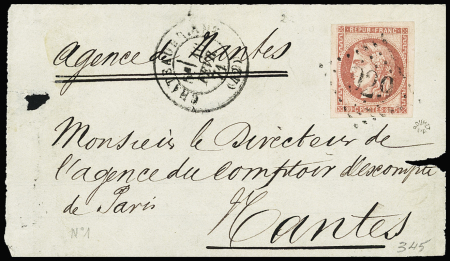 agence de Nantes
REPUB. FRANC.
Monsieur le Directeur de
l'agence du comptoir d'escompte
de Paris
Nantes
N°1
345